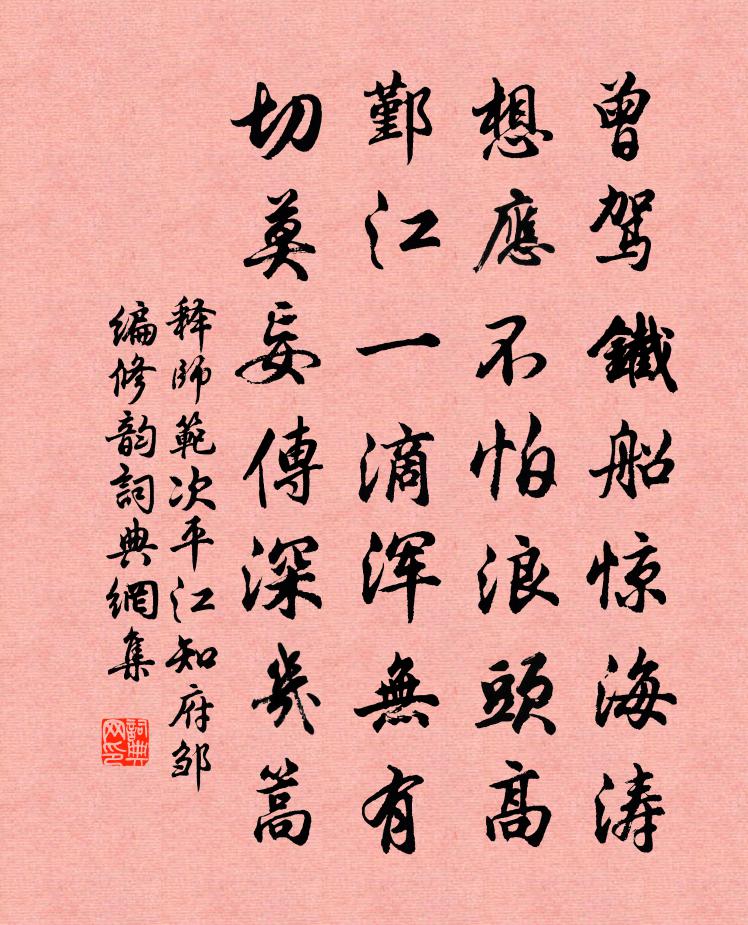 曾駕鐵船惊海涛
想應不怕浪頭高
鄞江一滴浑無有
切莫妄傳深幾篙
释師範次平江知府邹
编修韵詞典網集
詞典网印